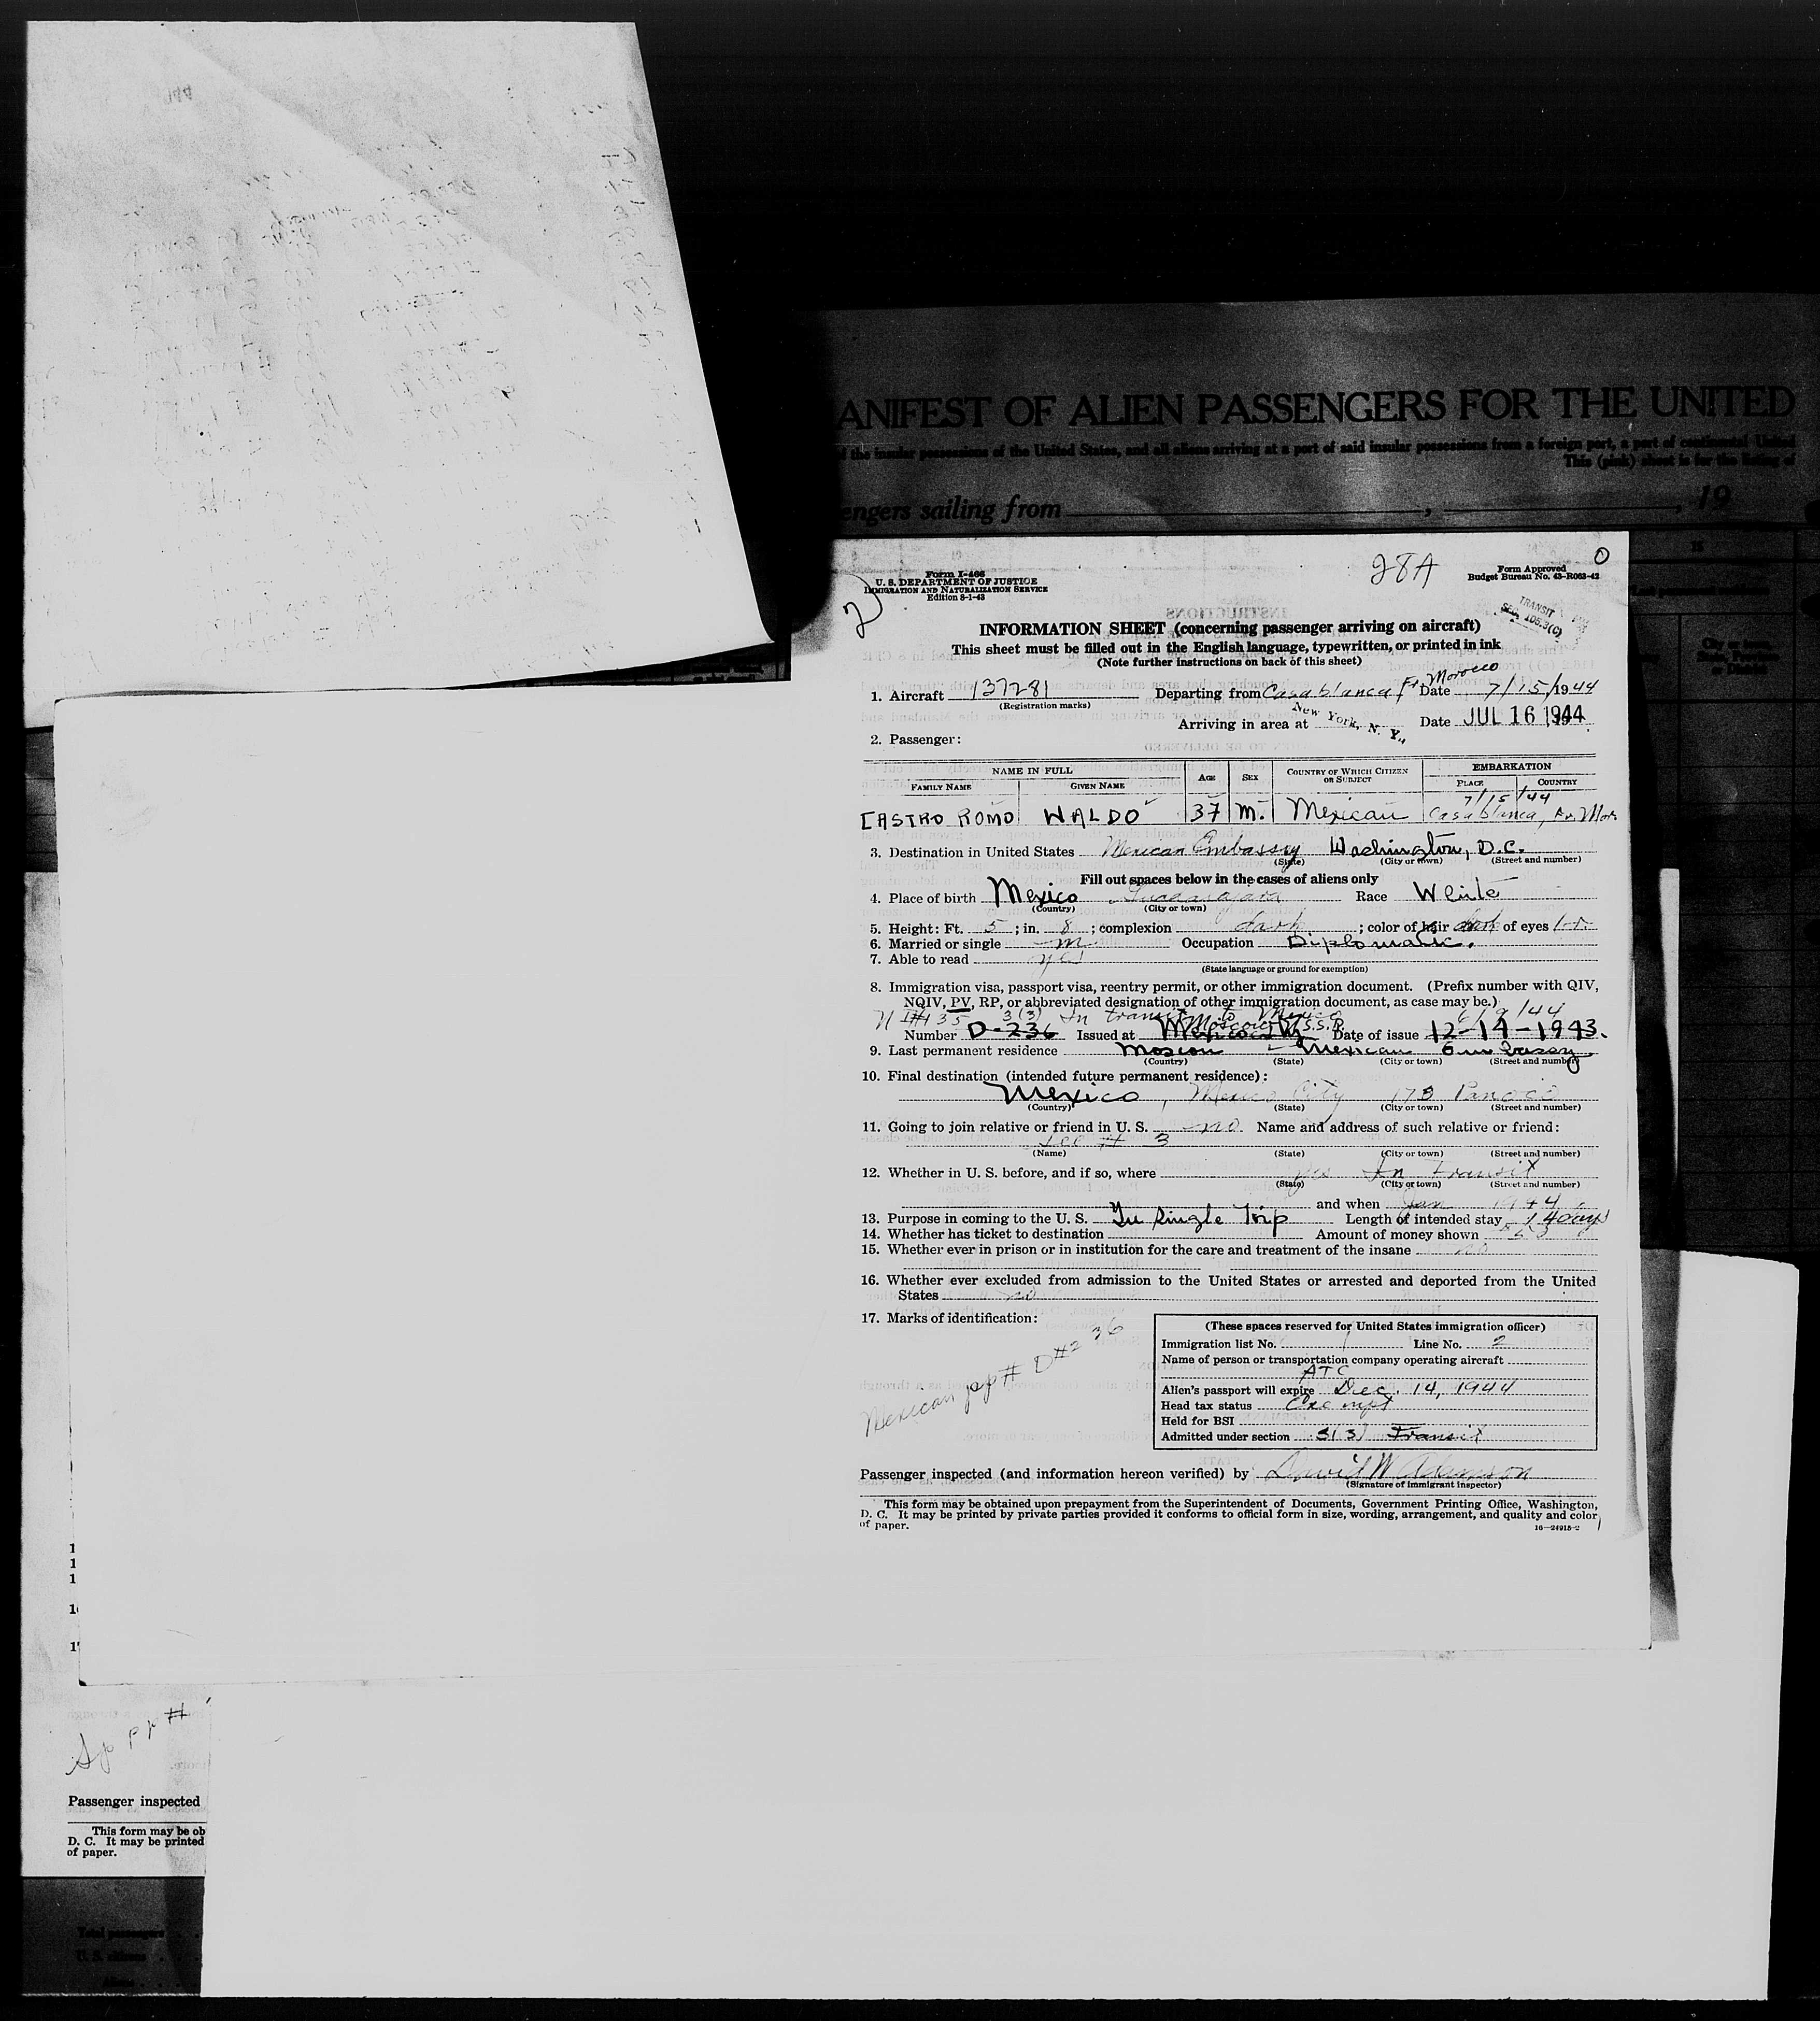 ANIFEST OF ALIEN PASSENGERS FOR THE UNITED
the insular possessions of the United States, and all aliens arriving at a port of said insular possessions from a foreign port, a port of continental United
This (pink) sheet is for the listing of
engers sailing from , , 19
28A
O
2
Form I-466
U. S. DEPARTMENT OF JUSTICE
IMMIGRATION AND NATURALIZATION SERVICE
Edition 8-1-43
Form Approved
Budget Bureau No. 43-R063-42
TRANSIT
SEC. 105.3(C)
INFORMATION SHEET (concerning passenger arriving on aircraft)
This sheet must be filled out in the English language, typewritten, or printed in ink
(Note further instructions on back of this sheet)
1. Aircraft 137281 Departing from Casablanca Fr. Morocco Date 7/15/1944
(Registration marks)
Arriving in area at New York, N. Y., Date JUL 16 1944
2. Passenger:
NAME IN FULL AGE SEX COUNTRY OF WHICH CITIZEN OR SUBJECT EMBARKATION
FAMILY NAME GIVEN NAME PLACE COUNTRY
7/15/44
CASTRO ROMO WALDO 37 M. Mexican Casablanca, Fr. Mor.
3. Destination in United States Mexican Embassy Washington, D.C.
(State) (City or town) (Street and number)
Fill out spaces below in the cases of aliens only
4. Place of birth Mexico Guadalajara Race White
(Country) (City or town)
5. Height: Ft. 5; in. 8; complexion dark; color of hair dark of eyes br.
6. Married or single m Occupation Diplomatic.
7. Able to read yes
(State language or ground for exemption)
8. Immigration visa, passport visa, reentry permit, or other immigration document. (Prefix number with QIV,
NQIV, PV, RP, or abbreviated designation of other immigration document, as case may be.)
3(3) In transit to Mexico
Moscow U.S.S.R. 6/9/44
Number D-236 Issued at Mexico City Date of issue 12-14-1943.
9. Last permanent residence Moscow Mexican Embassy
(Country) (State) (City or town) (Street and number)
10. Final destination (intended future permanent residence):
Mexico, Mexico City 173 Panoco
(Country) (State) (City or town) (Street and number)
11. Going to join relative or friend in U. S. no Name and address of such relative or friend:
See # 3
(Name) (State) (City or town) (Street and number)
12. Whether in U. S. before, and if so, where yes In Transit
(State) (City or town) (Street and number)
and when Jan 1944
13. Purpose in coming to the U. S. In single Trip Length of intended stay 14 days
14. Whether has ticket to destination Amount of money shown
15. Whether ever in prison or in institution for the care and treatment of the insane no
16. Whether ever excluded from admission to the United States or arrested and deported from the United
States no
17. Marks of identification:
Mexican pp# D#236
(These spaces reserved for United States immigration officer)
Immigration list No. 1 Line No. 2
Name of person or transportation company operating aircraft
ATC
Alien's passport will expire Dec. 14, 1944
Head tax status Exempt
Held for BSI
Admitted under section 3(3) Transit
Passenger inspected (and information hereon verified) by David W Adamson
(Signature of immigrant inspector)
This form may be obtained upon prepayment from the Superintendent of Documents, Government Printing Office, Washington,
D. C. It may be printed by private parties provided it conforms to official form in size, wording, arrangement, and quality and color
of paper.
16—24915-2
1
1
1
1
1
Sp pp #
Passenger inspected
This form may be ob
D. C. It may be printed
of paper.
Total passengers
U. S. citizens
Aliens